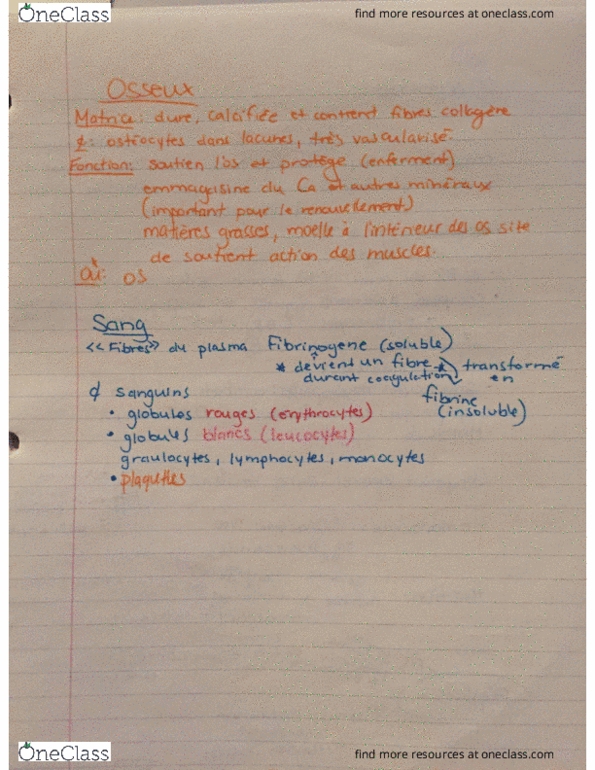 OneClass
find more resources at oneclass.com
Osseux
Matrice: dure, calcifiée et contient fibres collagère
¢: ostéocytes dans lacunes, très vascularisé
Fonction: soutien l'os et protège (enferment)
emmagisine du Ca et autres minéraux
(important pour le renouvellement)
matières grasses, moelle à l'intérieur des os site
de soutient action des muscles.
Où: os
Sang
<<Fibres>> du plasma Fibrinogene (soluble)
* devient un fibre * transformé
durant coagulation en
fibrine
¢ sanguins (insoluble)
• globules rouges (erythrocytes)
• globules blancs (leucocytes)
graulocytes, lymphocytes, monocytes
• plaquettes
OneClass
find more resources at oneclass.com